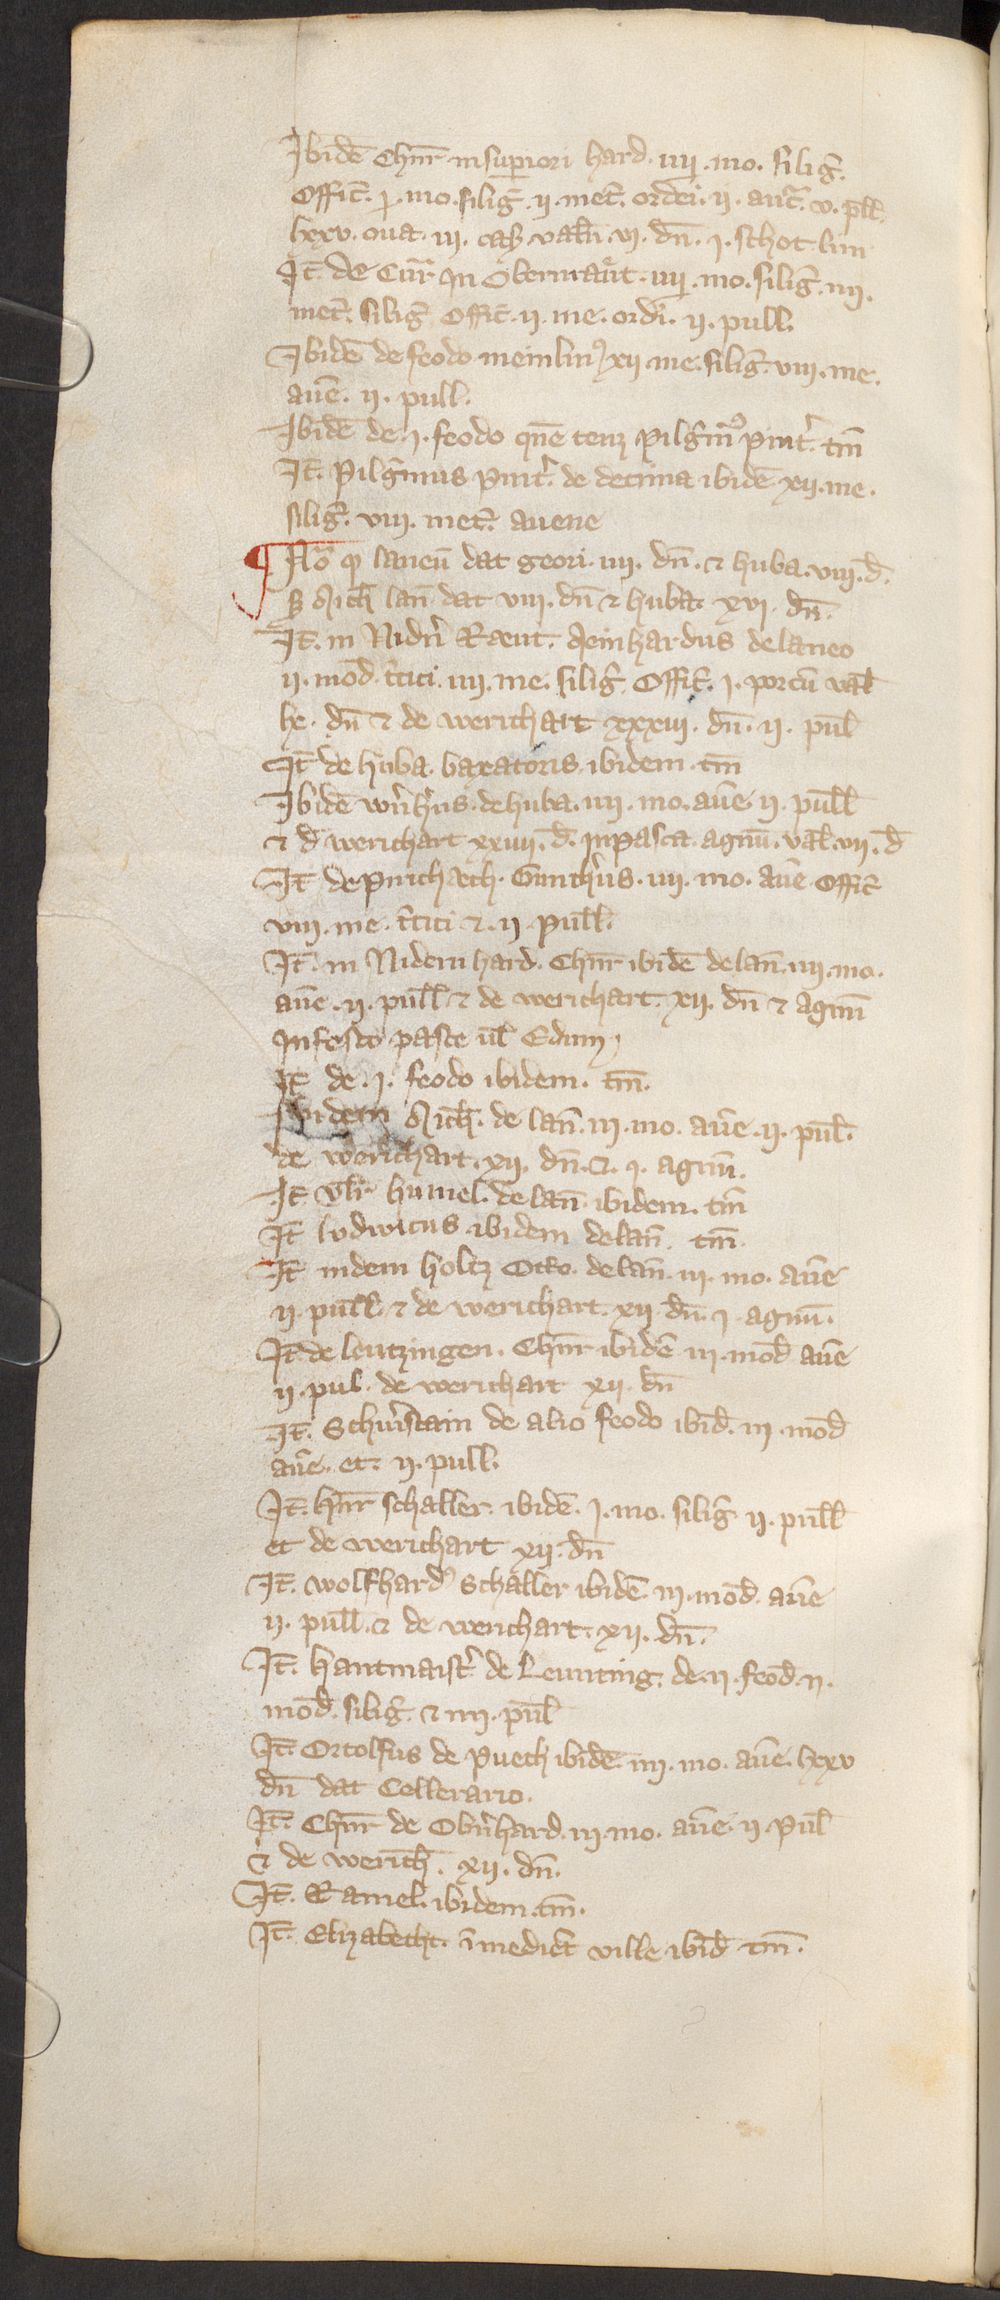 Ibidē Chnr̄ in supiori hard. iiij. mo. siliḡ.
Offic̄. j. mo. siliḡ ij. met̄. ordei. ij. anc̄. v. pll̄.
lxxv. oua. iij. cas̄ valn̄. vj. dn̄. j. schot lini
It̄ de Cur̄ In Obernraut. iiij. mo. siliḡ. iiij.
met̄. siliḡ Offic̄. ij. me. ordi. ij. pull.
Ibidē de feodo meinlini xij me. siliḡ. viij. me.
auē. ij. pull.
Ibidē de. j. feodo quē tenz Pilgͥmꝰ Pint̄. tm̄
It̄. Pilgͥmus Pint̄. de decima ibidē xij. me.
siliḡ. viij. met̄. auene
No͞ ꝙ laneū dat geori. iiij. dn̄. ⁊ huba. viij. d̄.
Sꝫ Mich̄ lan̄ dat viij. dn̄ ⁊ huba. xvj. dn̄.
It̄. in Nidn̄ Raut. Meinhardus de laneo
ij. mod̄ tͥtici. iiij. me. siliḡ Offic̄. j. porcū val̄
lx. dn̄ ⁊ de werichart xxxiij. dn̄. ij. pul̄
It̄ de huba. baxatoris. ibidem. tm̄
Ibidē wern̄hͥus. de huba. iiij. mo. auē ij. pull̄
⁊ d̄ werichart xxiiij. d̄. In pasca. agnū. val̄. vij. d̄
It̄ de Puichaech. Gunthͥus. iiij. mo. auē Offic̄
viij. me. tͥtici ⁊. ij. pull̄.
It̄. in Nidernhard. Chnr̄ ibidē de lan̄. iiij. mo.
auē. ij. pull̄ ⁊ de werichart. xij. dn̄ ⁊ agnū
In festo pasce ul̄ Edum
It̄ de. j. feodo ibidem. tm̄.
Ibidem Mich̄. de lan̄. iij. mo. auē. ij. pul̄.
de werichart. xij. dn̄. ⁊. j. agnū.
It̄ Vlr̄ humel. de lan̄. ibidem. tm̄
It̄ ludwicus ibidem de lan̄. tm̄.
It̄ indem holtz Otto. de lan̄. iij. mo. auē
ij. pull̄ ⁊ de werichart. xij dn̄. j. agnū.
It̄. de leutzingen. Chnr̄ ibidē iij. mod̄ auē
ij. pul. de werichart xij. dn̄
It̄. Schur̄stain de alio feodo ibid̄. iij. mod̄
auē. et. ij. pull.
It̄. hnr̄ schaller. ibidē. j. mo. siliḡ ij. pull̄
et de werichart xij. dn̄
It̄. wolfhardꝰ schaller ibidē. iij. mod̄. auē
ij. pull̄. ⁊ de werichart. xij. dn̄.
It̄. hantmaist̄ de Leunting. de. ij. feod̄. ij.
mod̄. siliḡ. ⁊ iiij. pul̄
It̄. Ortolfus de Puech ibidē. iiij. mo. auē. lxxv
dn̄ dat Cellerario.
It̄. Chnr̄ de Obn̄hard. iij. mo. auē. ij. Pul̄
⁊ de werich̄. xij. dn̄.
It̄. Ramel. ibidem. tm̄.
It̄. Elizabecht. ī mediet̄ ville ibid̄ tm̄.